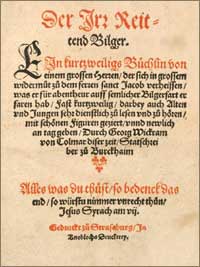 Der Irr Reit-
tend Bilger.
EIn kurtzweiligs Büchlin von
einem grossen Herren/ der sich in grossem
widermůt zu dem ferren sanct Jacob verheissen/
was er für abentheur auff semlicher Bilgerfart er
faren hab/ Fast kurtzweilig/ darbey auch Alten
und Jungen sehr dienstlich zu lesen und zů hören/
mit schönen Figuren geziert/ und newlich
an tag geben/ Durch Georg Wickram
von Colmar diser zeit/ Stattschrei
ber zů Burckhaim
Alles was du thůst/ so bedenck das
end/ so würstu nimmer unrecht thůn/
Jesus Syrach am vij.
Gedruckt zů Straßburg/ In
Knoblochs Druckerey.